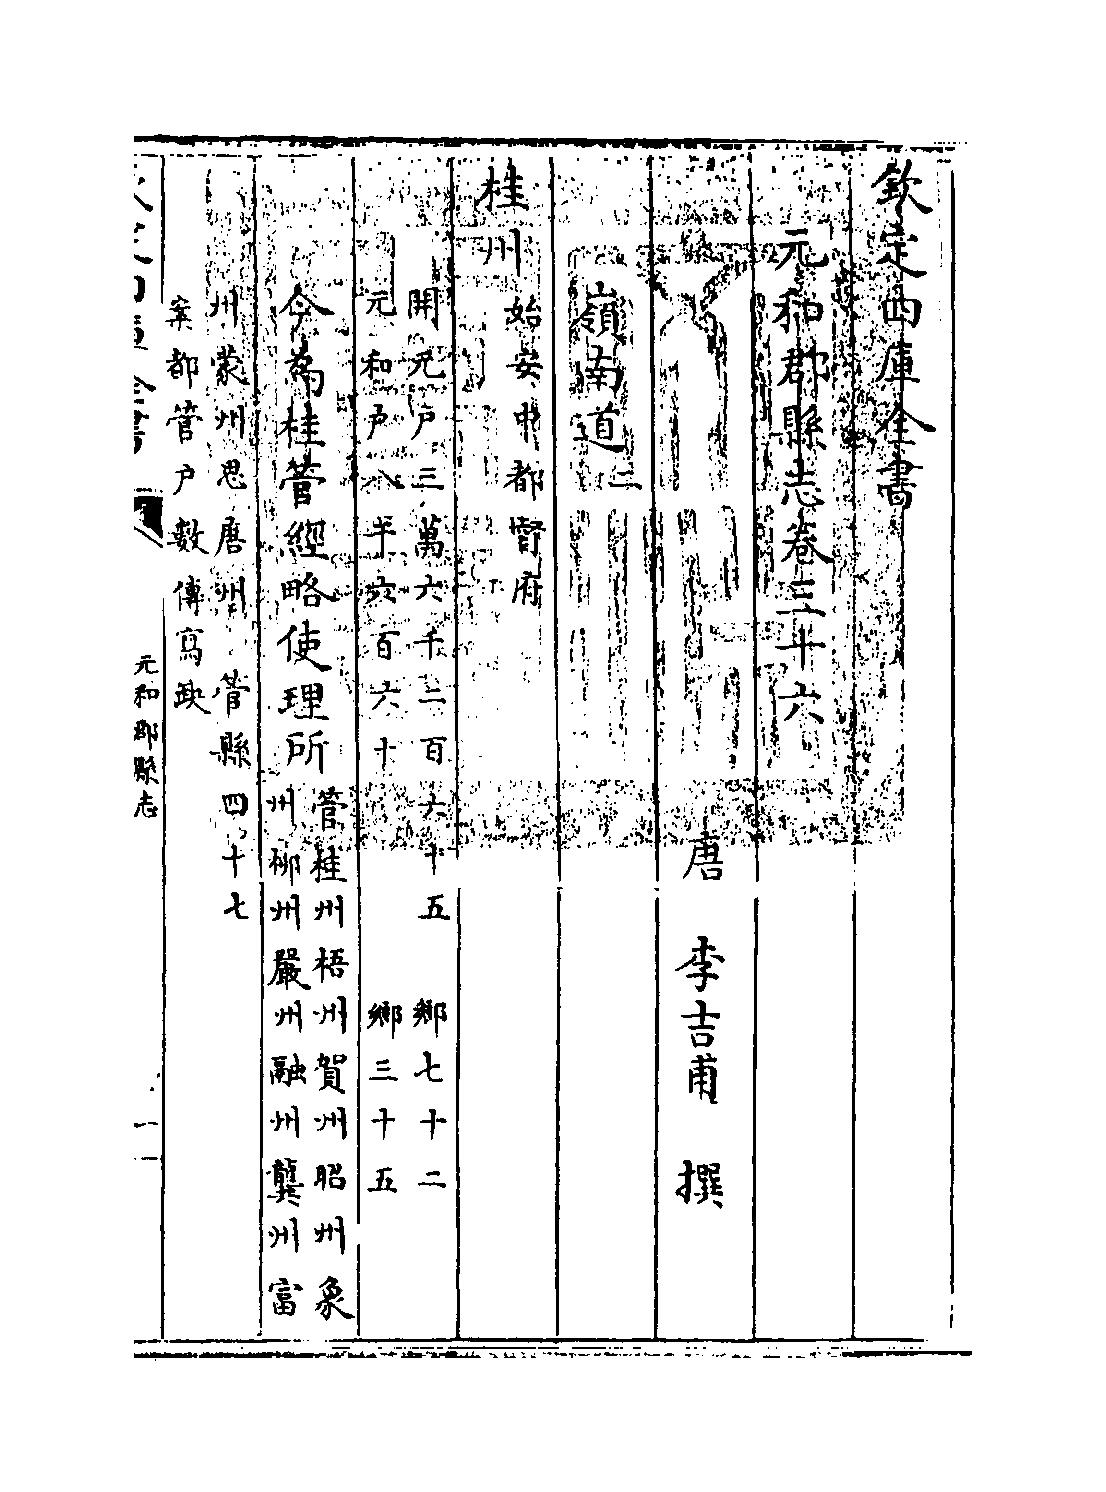 欽定四庫全書
元和郡縣志卷三十六
唐 李吉甫 撰
嶺南道二
桂州始安中都督府
開元戶三萬六千二百六十五 鄉七十二
元和戶八千六百六十 鄉三十五
今為桂管經畧使理所管桂州梧州賀州昭州象
州柳州嚴州融州龔州富
州蒙州思唐州 管縣四十七
案都管戶數傳寫缺
元和郡縣志